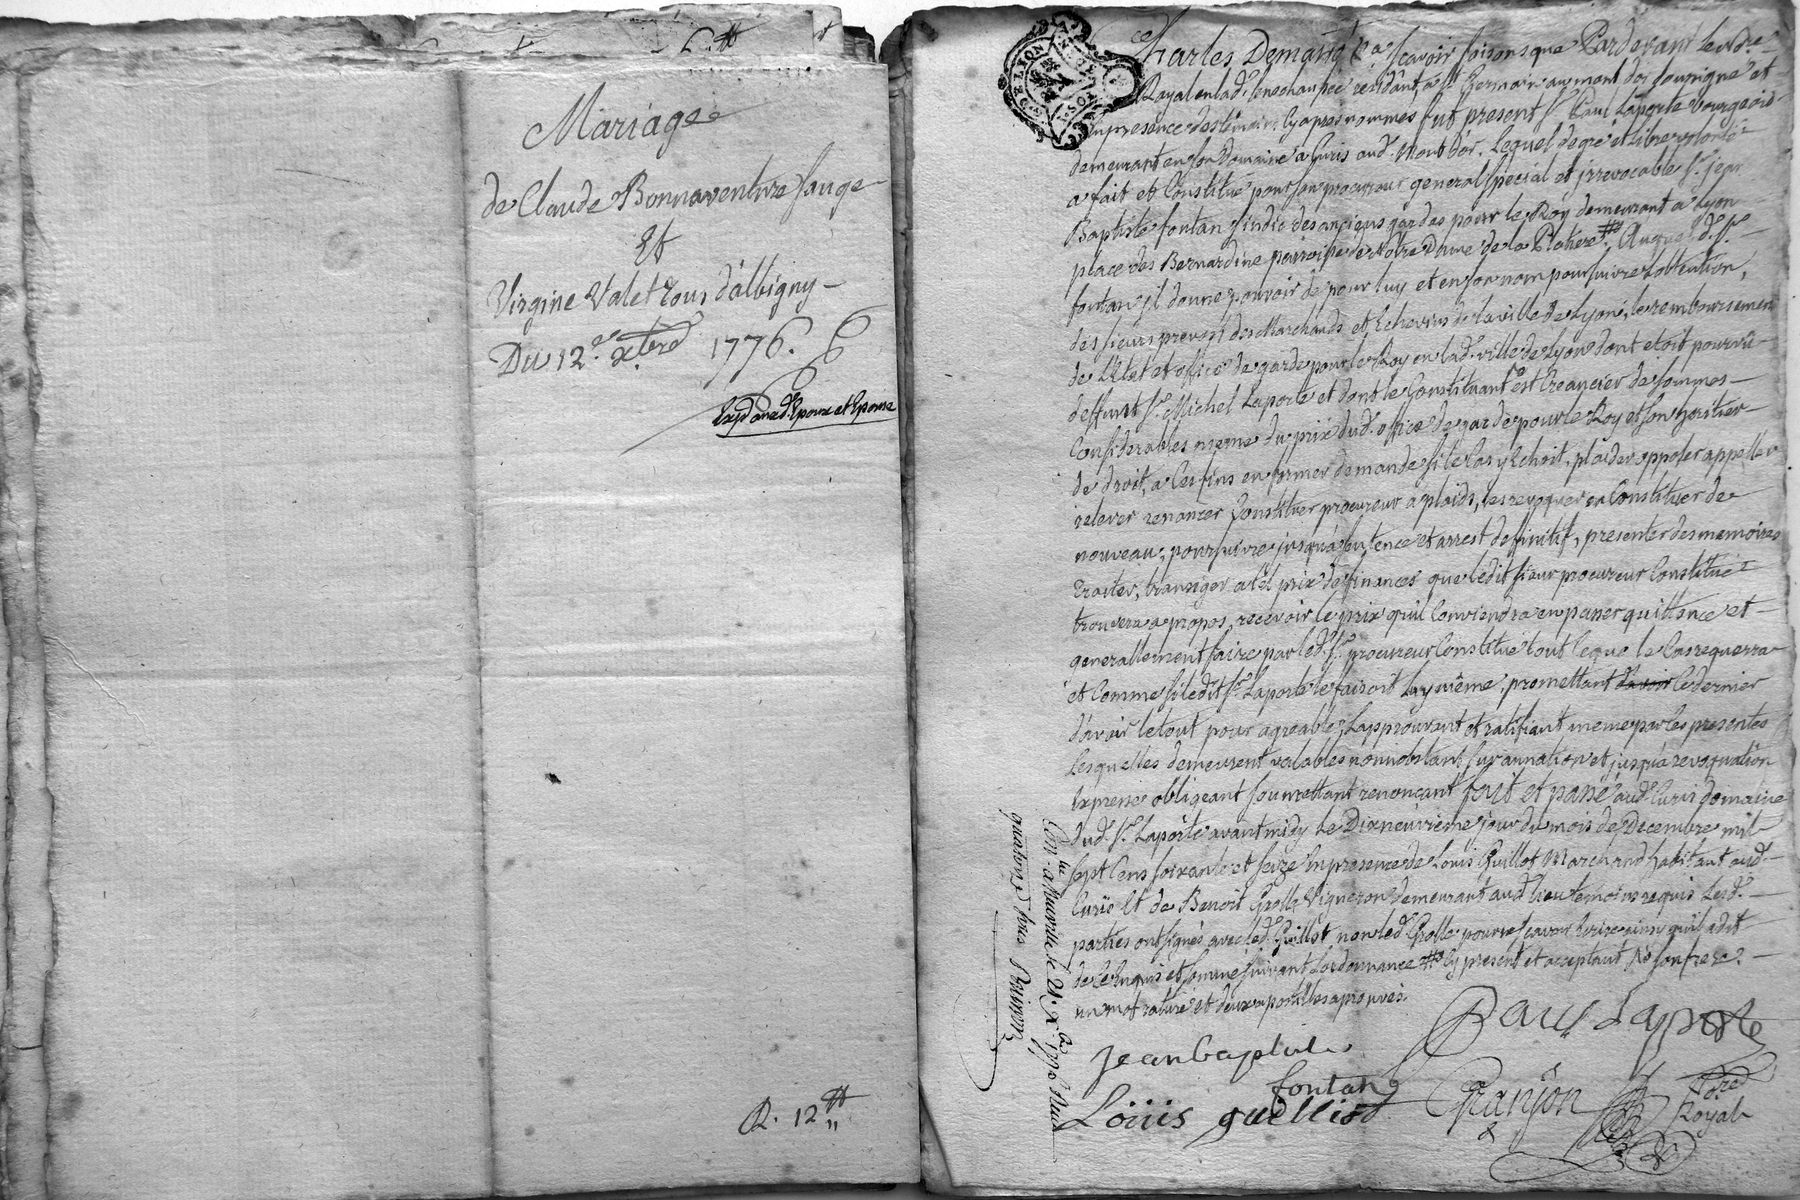 6.tt
Mariage
de Claude Bonnaventure fauge
Et
Virgine Valet d'albigny
Du 12.e xbre 1776.
Exp. aux d. Epoux et Epouse
R. 12.tt
DE LION
Charles Demans &a. scavoir faisons que Pardevant le No.re
Royal en lad. senechaussée residant a St. Germain au mont dor soussigné et
en presence des temoins cy apres nommés fut present Sr. Paul Laporte bourgeois
demeurant en son Domaine a Curis aud. Mont d'or. Lequel de gré et libre volonté
a fait et Constitué pour son procureur general special et irrevocable Sr. jean
Baptiste fontan sindic des anciens gardes pour le Roy demeurant a Lyon
place des Bernardine parroisse de Notre Dame de la Platiere # Auquel d. Sr.
fontan il donne pouvoir de pour luy et en son nom poursuivre l'obtention,
des sieurs prevost des Marchands et Echevins de la ville de Lyon, le remboursement
de L'Etat et office de garde pour le Roy en lad. ville de Lyon dont etoit pourvû
deffunt Sr. Michel Laporte et dont le Constituant est Creancier de sommes
Considerables meme du prix dud. office de garde pour le Roy et son heritier
de droit, a Ces fins en former demande si le Cas y Echoit, plaider oppoler appeller
relever renoncer Constituer procureur a plaids, les revoquer en Constituer de
nouveau, poursuivre jusqu'a sentence et arrest definitif, presenter des memoires
traiter, transiger a tel prix de finances que ledit sieur procureur Constitué
trouvera a propos, recevoir le prix qu'il Conviendra en passer quittance et
generallement faire par led. Sr. procureur Constitué tout Ce que le Cas requerra
et Comme si ledit Sr. Laporte le faisoit Luy même, promettant d'avoir Ce dernier
d'avoir le tout pour agreable, Lapprouvant et ratifiant meme par les presentes
Lesquelles demeurent valables nonnobstant surannation et jusqu'a revoquation
Expresse obligeant soumettant renonçant fait et passé aud. Curis domaine
dud. Sr. Laporte avant midy Le Dixneuvieme jour du mois de Decembre mil
sept Cens soixante et seize En presence de Louis Guillot Marchand habitant aud.
Curis Et de Benoit Grolle Vigneron demeurant aud. lieu temoins requis Lesd.
parties ont signés avec led. Guillot non led. Grolle pour ne scavoir Ecrire ainsy qu'il a dit
de Ce Enquis et sommé suivant L'ordonnance # Cy present et acceptant
un mot raturé et deux apostilles aprouvés.
Paul Laporte
jean baptiste
fontan
Louis guilliot
Granjon
No.re
Royal
Con. a Neuville le 21. Xbre 1776 Reçu
quatorze sous